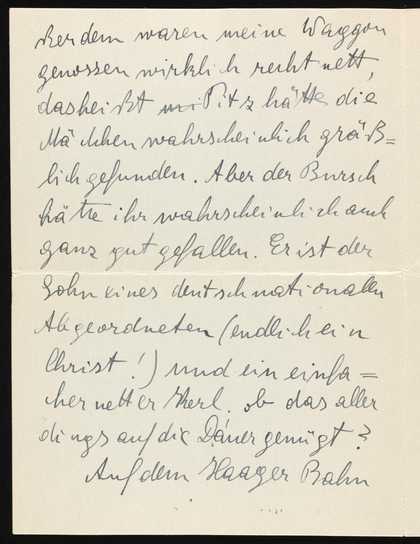 ßerdem waren meine Waggon
genossen wirklich recht nett,
das heißt Pitz hätte die
Mädchen wahrscheinlich gräß=
lich gefunden. Aber der Bursch
hätte ihr wahrscheinlich auch
ganz gut gefallen. Er ist der
Sohn eines deutschnationalen
Abgeordneten (endlich ein
Christ!) und ein einfa=
cher netter Kerl. ob das aller
dings auf die Dauer genügt?
Auf dem Haager Bahn